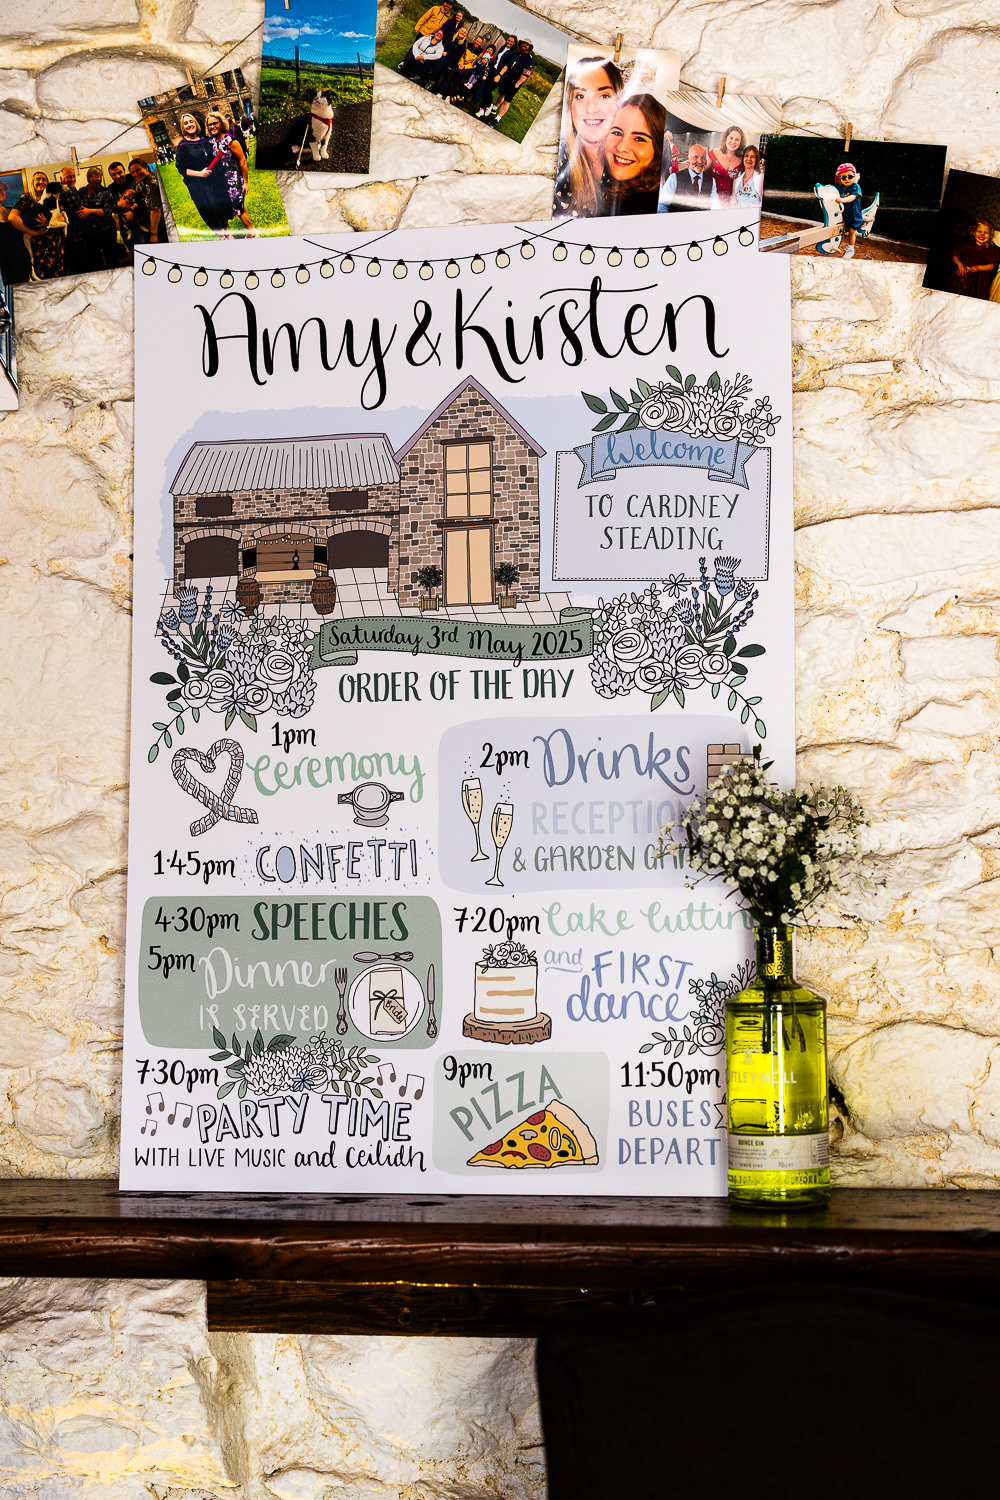 Amy & Kirsten
Welcome
TO CARDNEY
STEADING
Saturday 3rd May 2025
ORDER OF THE DAY
1pm
Ceremony
1·45pm CONFETTI
2pm Drinks
RECEPTION
& GARDEN
4·30pm SPEECHES
5pm Dinner
IS SERVED
7·20pm Cake Cutting
and FIRST
dance
7·30pm
PARTY TIME
WITH LIVE MUSIC and ceilidh
9pm
PIZZA
11·50pm
BUSES
DEPART
QUINCE GIN